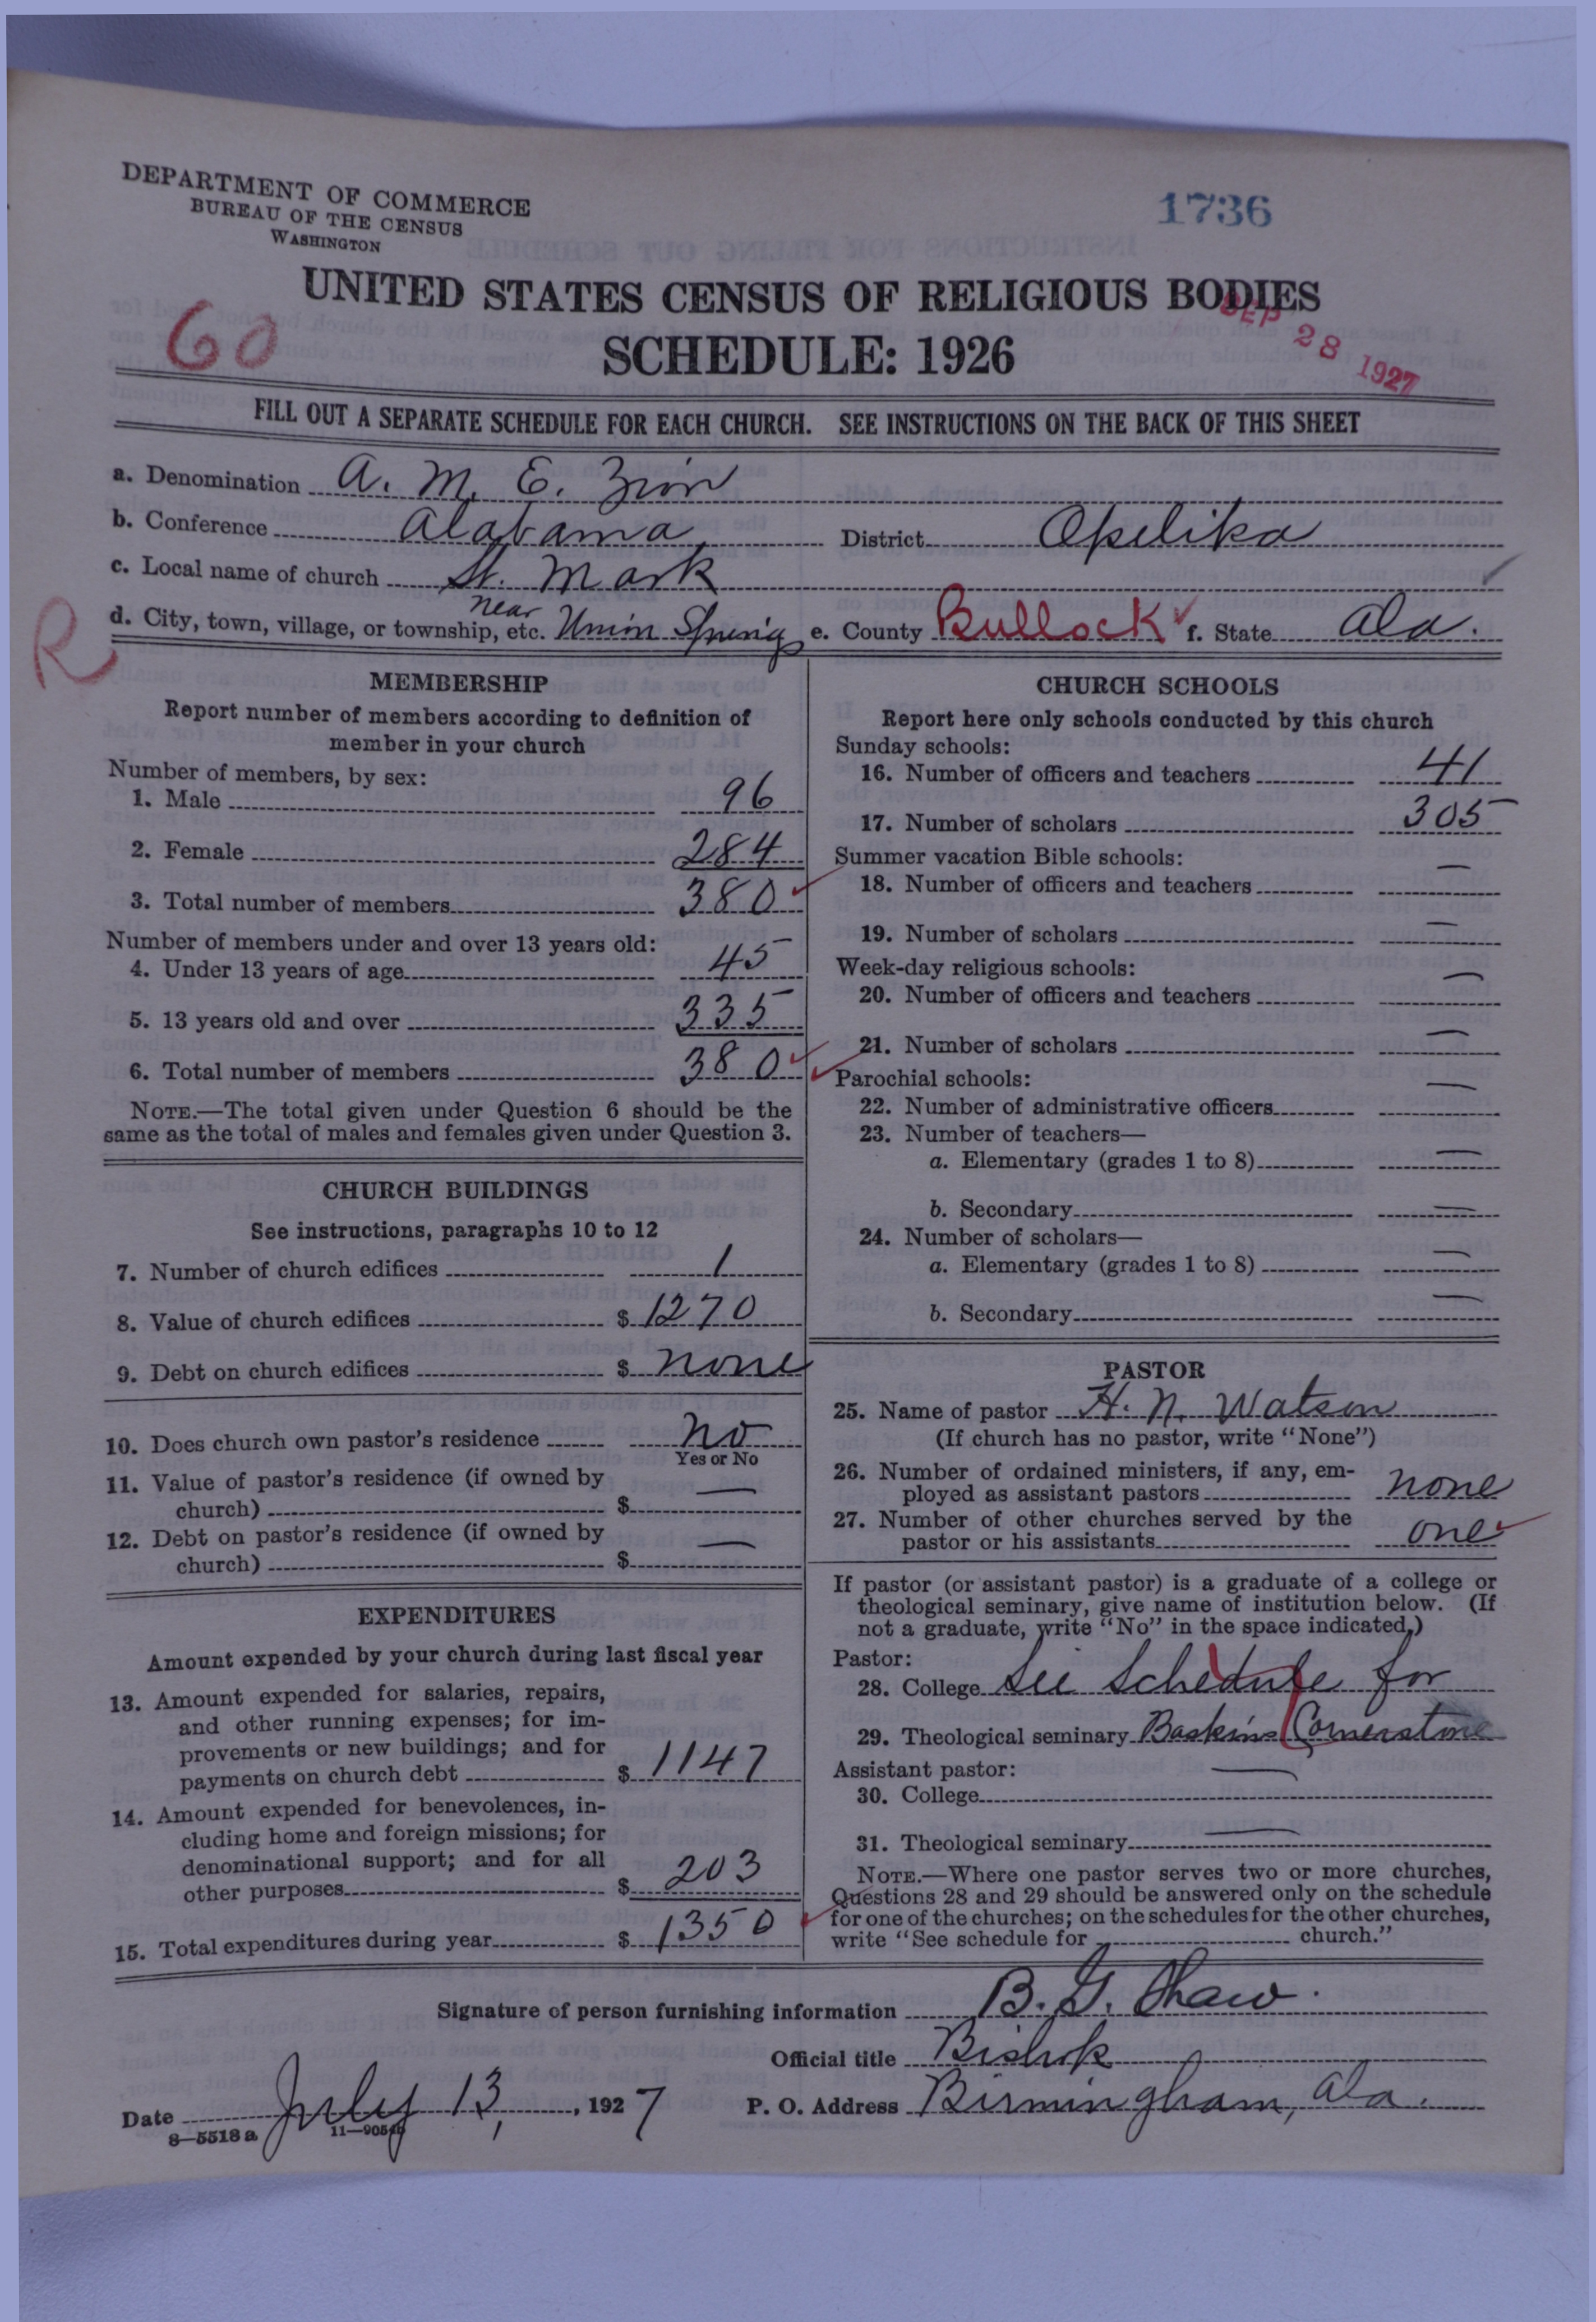 DEPARTMENT OF COMMERCE
BUREAU OF THE CENSUS
WASHINGTON
1736
UNITED STATES CENSUS OF RELIGIOUS BODIES
SEP 28 1927
60
SCHEDULE: 1926
FILL OUT A SEPARATE SCHEDULE FOR EACH CHURCH. SEE INSTRUCTIONS ON THE BACK OF THIS SHEET
a. Denomination A. M. E. Zion
b. Conference Alabama District Opelika
c. Local name of church St. Mark
d. City, town, village, or township, etc. near Union Springs e. County Bullock f. State Ala.
R
MEMBERSHIP
Report number of members according to definition of
member in your church
Number of members, by sex:
1. Male 96
2. Female 284
3. Total number of members 380
Number of members under and over 13 years old:
4. Under 13 years of age 45
5. 13 years old and over 335
6. Total number of members 380
NOTE.—The total given under Question 6 should be the
same as the total of males and females given under Question 3.
CHURCH BUILDINGS
See instructions, paragraphs 10 to 12
7. Number of church edifices 1
8. Value of church edifices $ 1270
9. Debt on church edifices $ none
10. Does church own pastor's residence no
Yes or No
11. Value of pastor's residence (if owned by
church) $ —
12. Debt on pastor's residence (if owned by
church) $ —
EXPENDITURES
Amount expended by your church during last fiscal year
13. Amount expended for salaries, repairs,
and other running expenses; for im-
provements or new buildings; and for
payments on church debt $ 1147
14. Amount expended for benevolences, in-
cluding home and foreign missions; for
denominational support; and for all
other purposes $ 203
15. Total expenditures during year $ 1350
CHURCH SCHOOLS
Report here only schools conducted by this church
Sunday schools:
16. Number of officers and teachers 41
17. Number of scholars 305
Summer vacation Bible schools:
18. Number of officers and teachers —
19. Number of scholars —
Week-day religious schools:
20. Number of officers and teachers —
21. Number of scholars —
Parochial schools:
22. Number of administrative officers —
23. Number of teachers—
a. Elementary (grades 1 to 8) —
b. Secondary —
24. Number of scholars—
a. Elementary (grades 1 to 8) —
b. Secondary —
PASTOR
25. Name of pastor H. N. Watson
(If church has no pastor, write "None")
26. Number of ordained ministers, if any, em-
ployed as assistant pastors none
27. Number of other churches served by the
pastor or his assistants one
If pastor (or assistant pastor) is a graduate of a college or
theological seminary, give name of institution below. (If
not a graduate, write "No" in the space indicated.)
Pastor:
28. College See Schedule for
29. Theological seminary Baskins Cornerstone
Assistant pastor: —
30. College
31. Theological seminary —
NOTE.—Where one pastor serves two or more churches,
Questions 28 and 29 should be answered only on the schedule
for one of the churches; on the schedules for the other churches,
write "See schedule for church."
Signature of person furnishing information B. G. Shaw
Official title Bishop
Date July 13, 1927 P. O. Address Birmingham, Ala.
8—5518 a 11—9054b